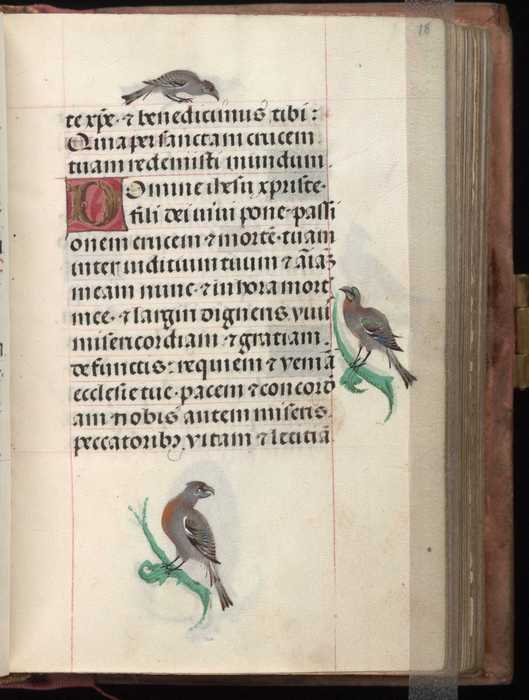 18
te xp̄e · ⁊ benedicimus tibi :
Quia per sanctam crucem
tuam redemisti mundum .
Domine ihesu xpriste ·
fili dei uiui pone · passi
onem crucem ⁊ mortē · tuam
inter iudicium tuum ⁊ aīas
meam nunc · ⁊ in hora mort
mee · ⁊ largiri digneris viui
misericordiam ⁊ gratiam .
defunctis : requiem ⁊ veniā
ecclesie tue · pacem ⁊ concord
am nobis autem miseris
peccatoribꝫ vitam ⁊ leticiā